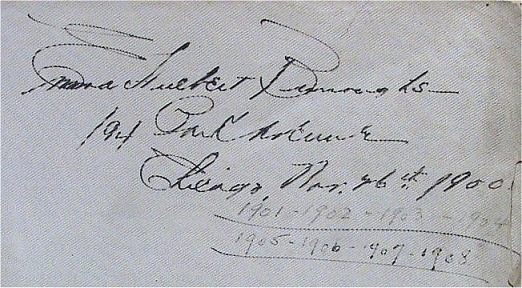 Emma Hulbert Burroughs
194 Park Avenue
Chicago, Nov. 26th 1900
1901 - 1902 - 1903 - 1904
1905 - 1906 - 1907 - 1908